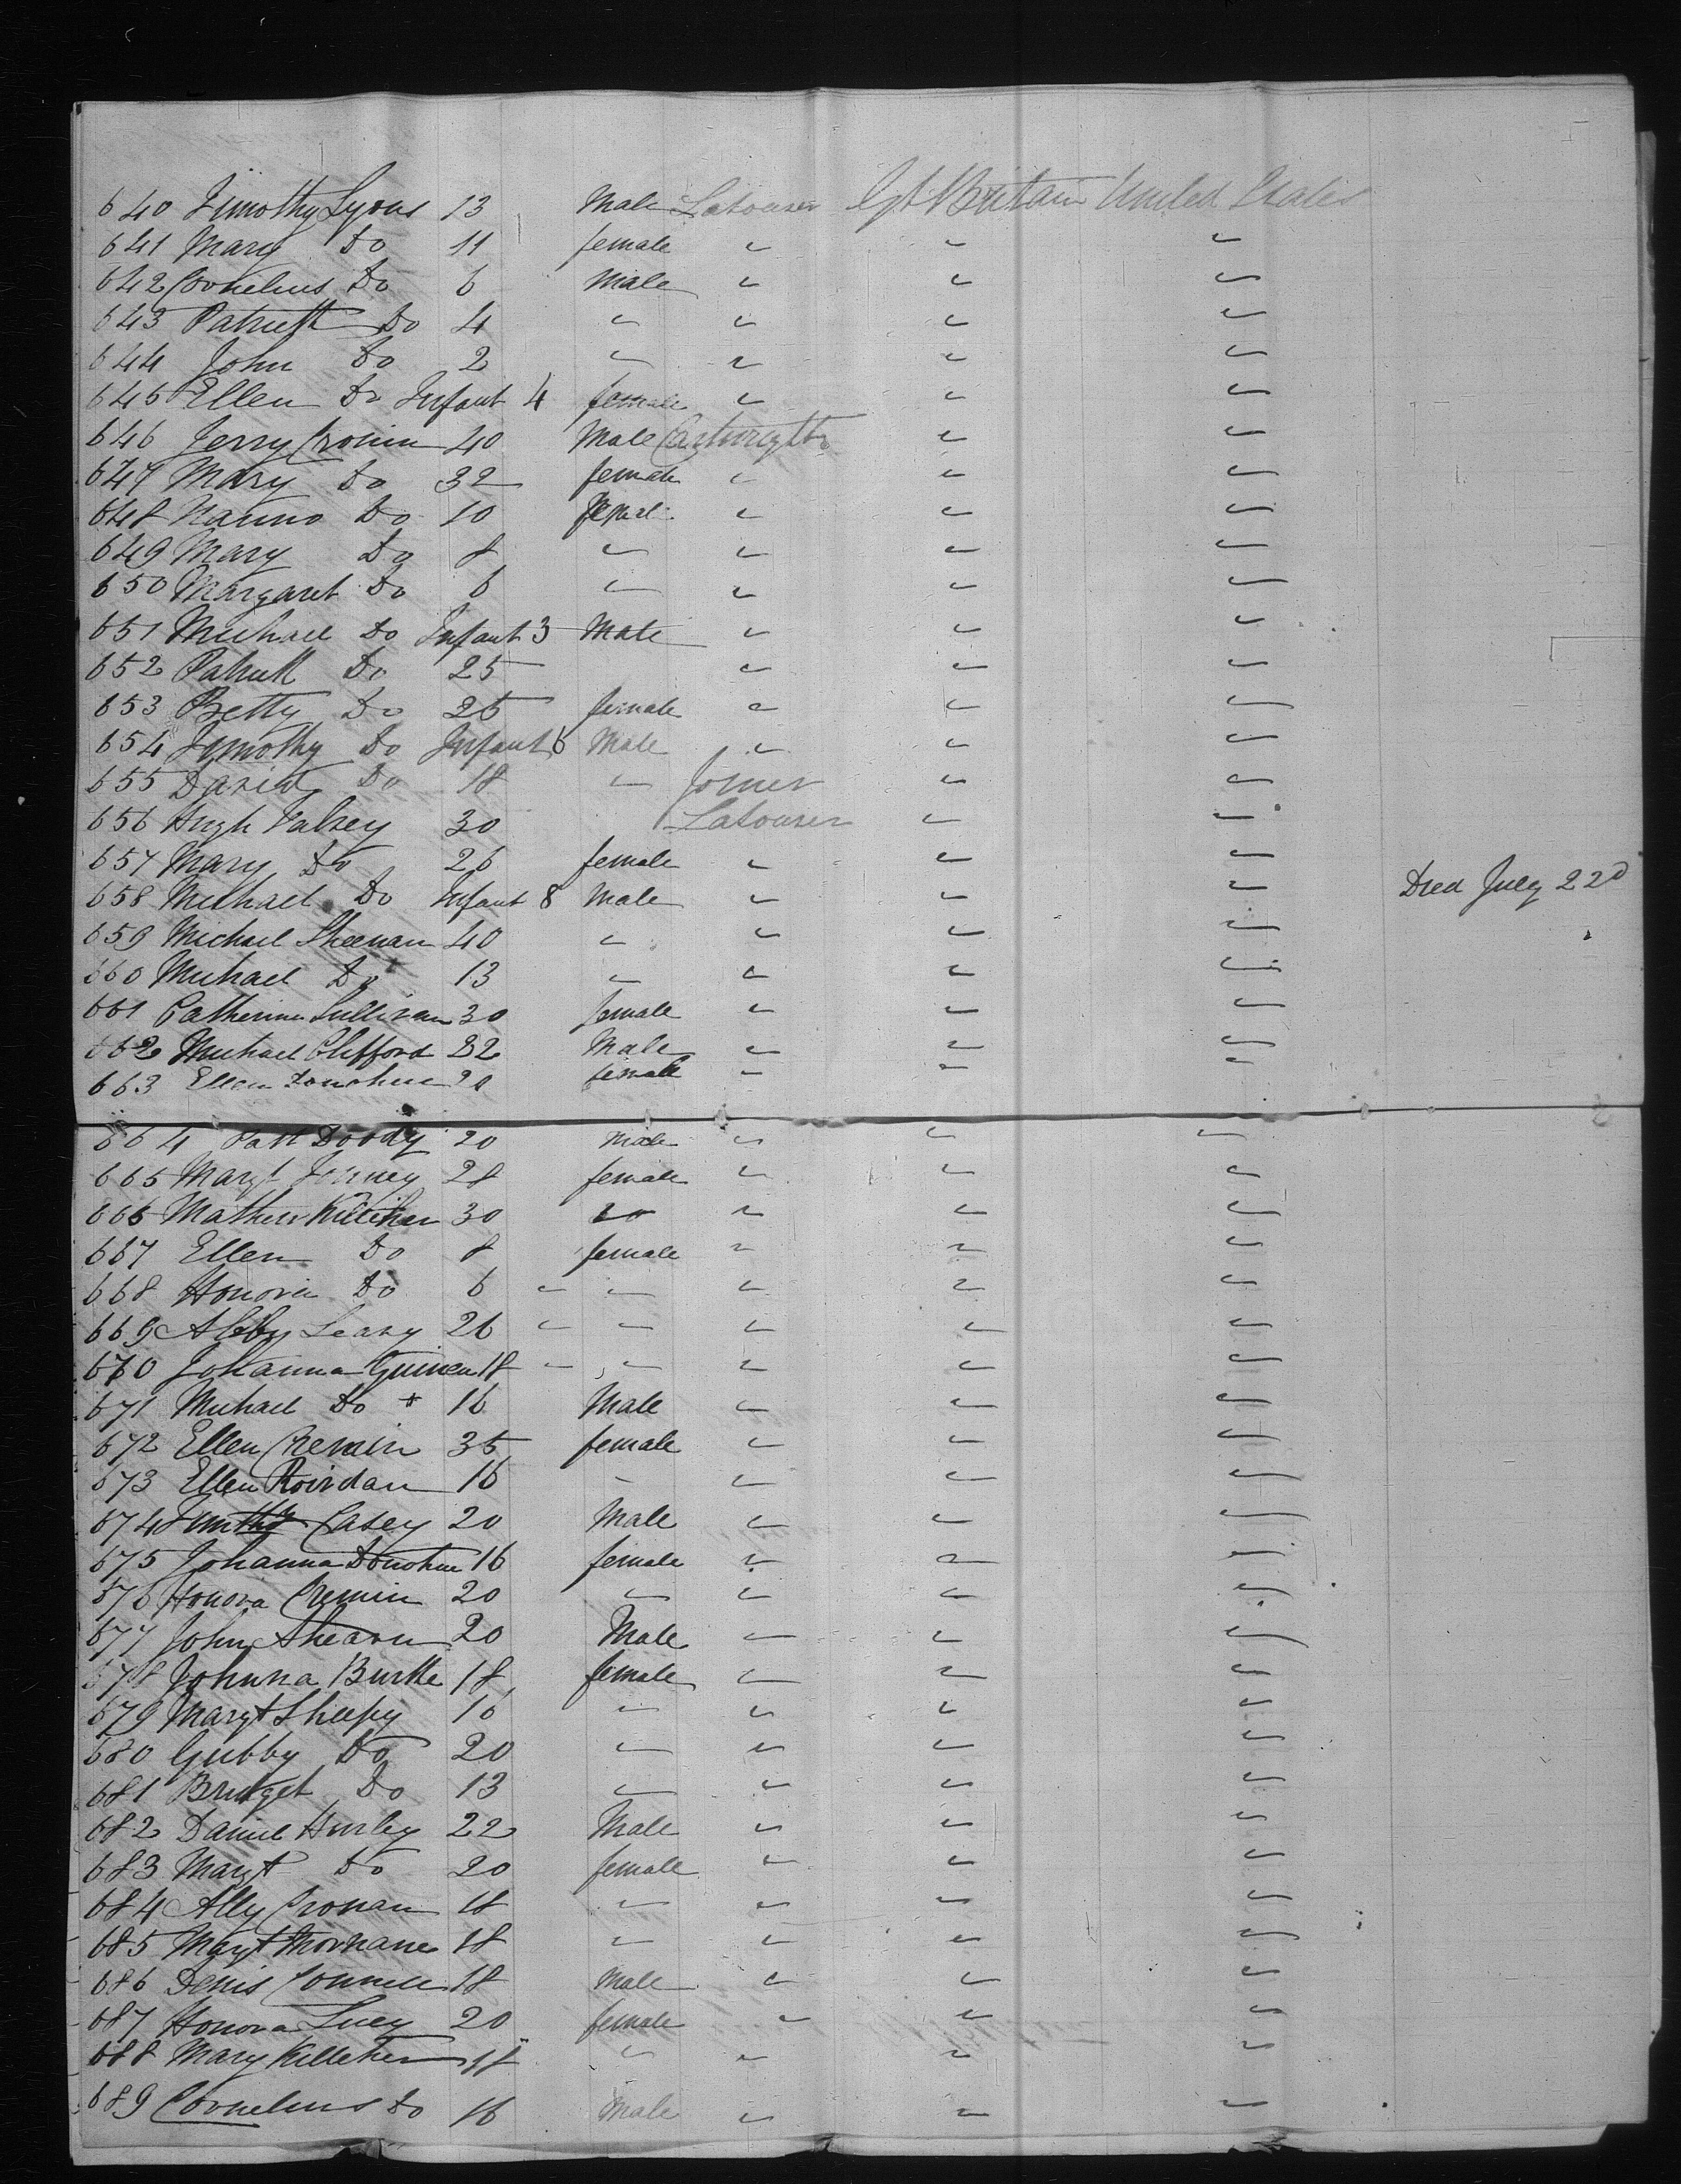 640 Timothy Lyons 13 Male Labourer Gt Britain United States
641 Mary Do 11 female " " "
642 Cornelius Do 6 Male " " "
643 Patrick Do 4 " " " "
644 John Do 2 " " " "
645 Ellen Do Infant 4 female " " "
646 Jerry Cronin 40 Male Cartwright " "
647 Mary Do 32 female " " "
648 Nanno Do 10 " " "
649 Mary Do 8 " " " "
650 Margaret Do 6 " " " "
651 Michael Do Infant 3 Male " " "
652 Patrick Do 25 " " "
653 Betty Do 26 female " " "
654 Timothy Do Infant 6 Male " " "
655 David Do 18 " Joiner " "
656 Hugh Falvey 30 Labourer " "
657 Mary Do 26 female " " "
658 Michael Do Infant 8 Male " " " Died July 22d
659 Michael Sheenan 40 " " " "
660 Michael Do 13 " " " "
661 Catherine Sullivan 30 female " " "
662 Michael Clifford 22 Male " " "
663 Ellen Donohue 20 female " " "
664 Patt Doody 20 male " " "
665 Margt 28 female " " "
666 Mathew Killiher 30 Do " " "
667 Ellen Do 8 female " " "
668 Honora Do 6 " " " " "
669 Abby Leary 26 " " " " "
670 Johanna Guinea 18 " " " " "
671 Michael Do 16 Male " " "
672 Ellen Cremin 35 female " " "
673 Ellen Roirdan 16 " " " "
674 Timthy Casey 20 Male " " "
675 Johanna Donohue 16 female " " "
676 Honora Cremin 20 " " " "
677 John Ahearn 20 Male " " "
678 Johnna Burke 18 female " " "
679 Margt Sheehy 16 " " " "
680 Gubby Do 20 " " " "
681 Bridget Do 13 " " " "
682 Daniel Hurley 22 Male " " "
683 Margt Do 20 female " " "
684 Ally Cronan 18 " " " "
685 Margt Mornane 18 " " " "
686 Denis Connell 18 Male " " "
687 Honora Lucy 20 female " " "
688 Mary Killeher 18 " " " "
689 Cornelius Do 16 Male " " "